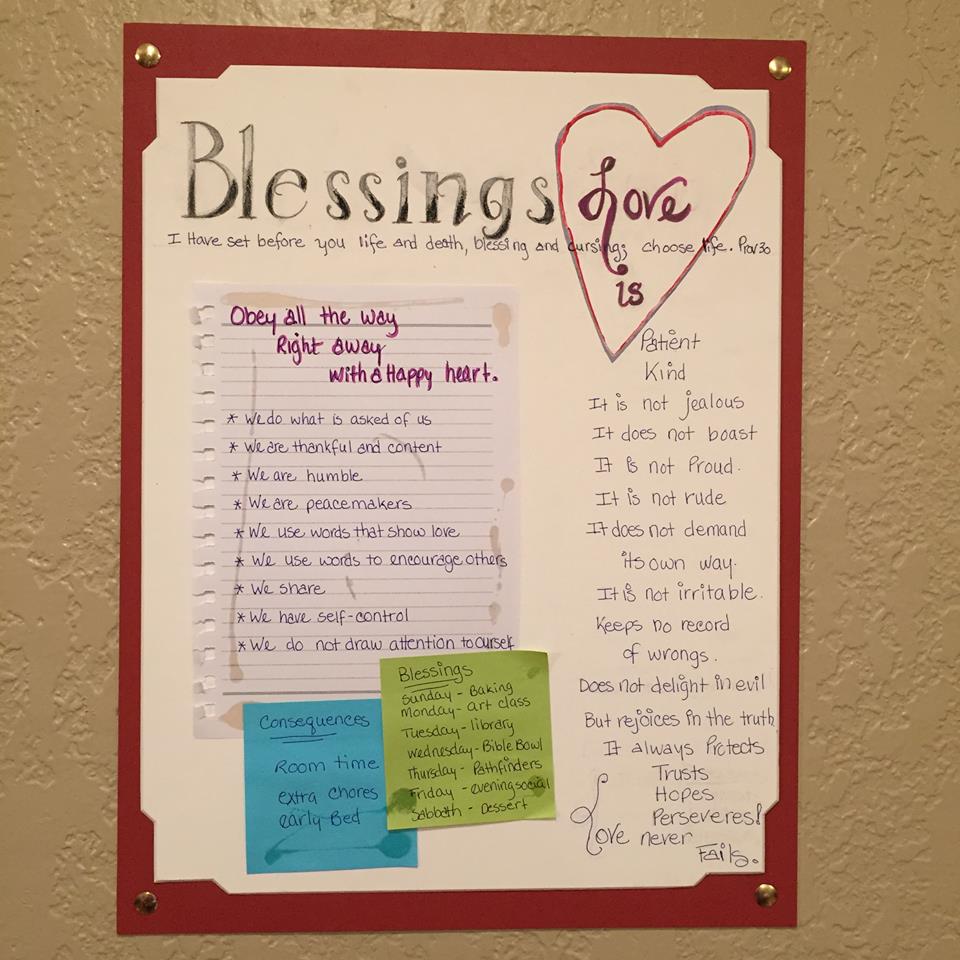 Blessings
I Have set before you life and death, blessing and cursing; choose life. Prov 30
Love
is
Patient
Kind
It is not jealous
It does not boast
It is not Proud.
It is not rude
It does not demand
its own way.
It is not irritable.
Keeps no record
of wrongs.
Does not delight in evil
But rejoices in the truth
It always Protects
Trusts
Hopes
Perseveres!
Love never
Fails.
Obey all the way
Right away
with a Happy heart.
* We do what is asked of us
* We are thankful and content
* We are humble
* We are peacemakers
* We use words that show love
* We use words to encourage others
* We share
* We have self-control
* We do not draw attention to ourself
Consequences
Room time
extra chores
early Bed
Blessings
Sunday - Baking
Monday - art class
Tuesday - library
Wednesday - Bible Bowl
Thursday - Pathfinders
Friday - evening social
Sabbath - Dessert